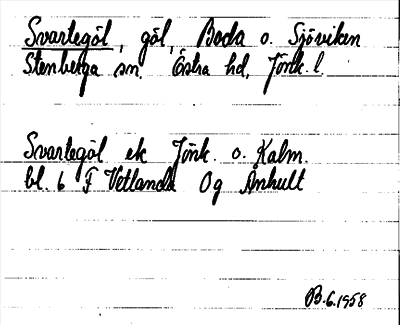 Svartegöl, göl, Boda o. Sjöviken
Stenberga sn. Östra hd, Jönk. l.
Svartegöl ek Jönk. o. Kalm.
bl. 6 F Vetlanda Og Århult
B.6.1958